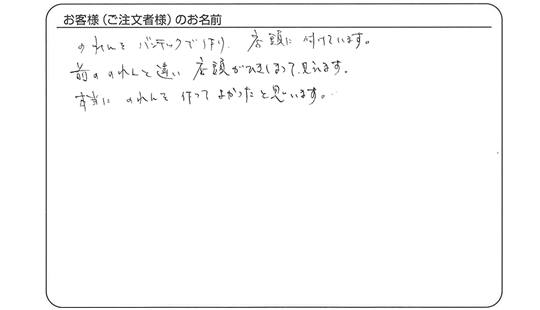 お客様（ご注文者様）のお名前
のれんを バンテックで作り、店頭に 付けています。
前の のれんと違い 店頭がひきしまって、見えます。
本当に のれんを 作って よかったと思います。